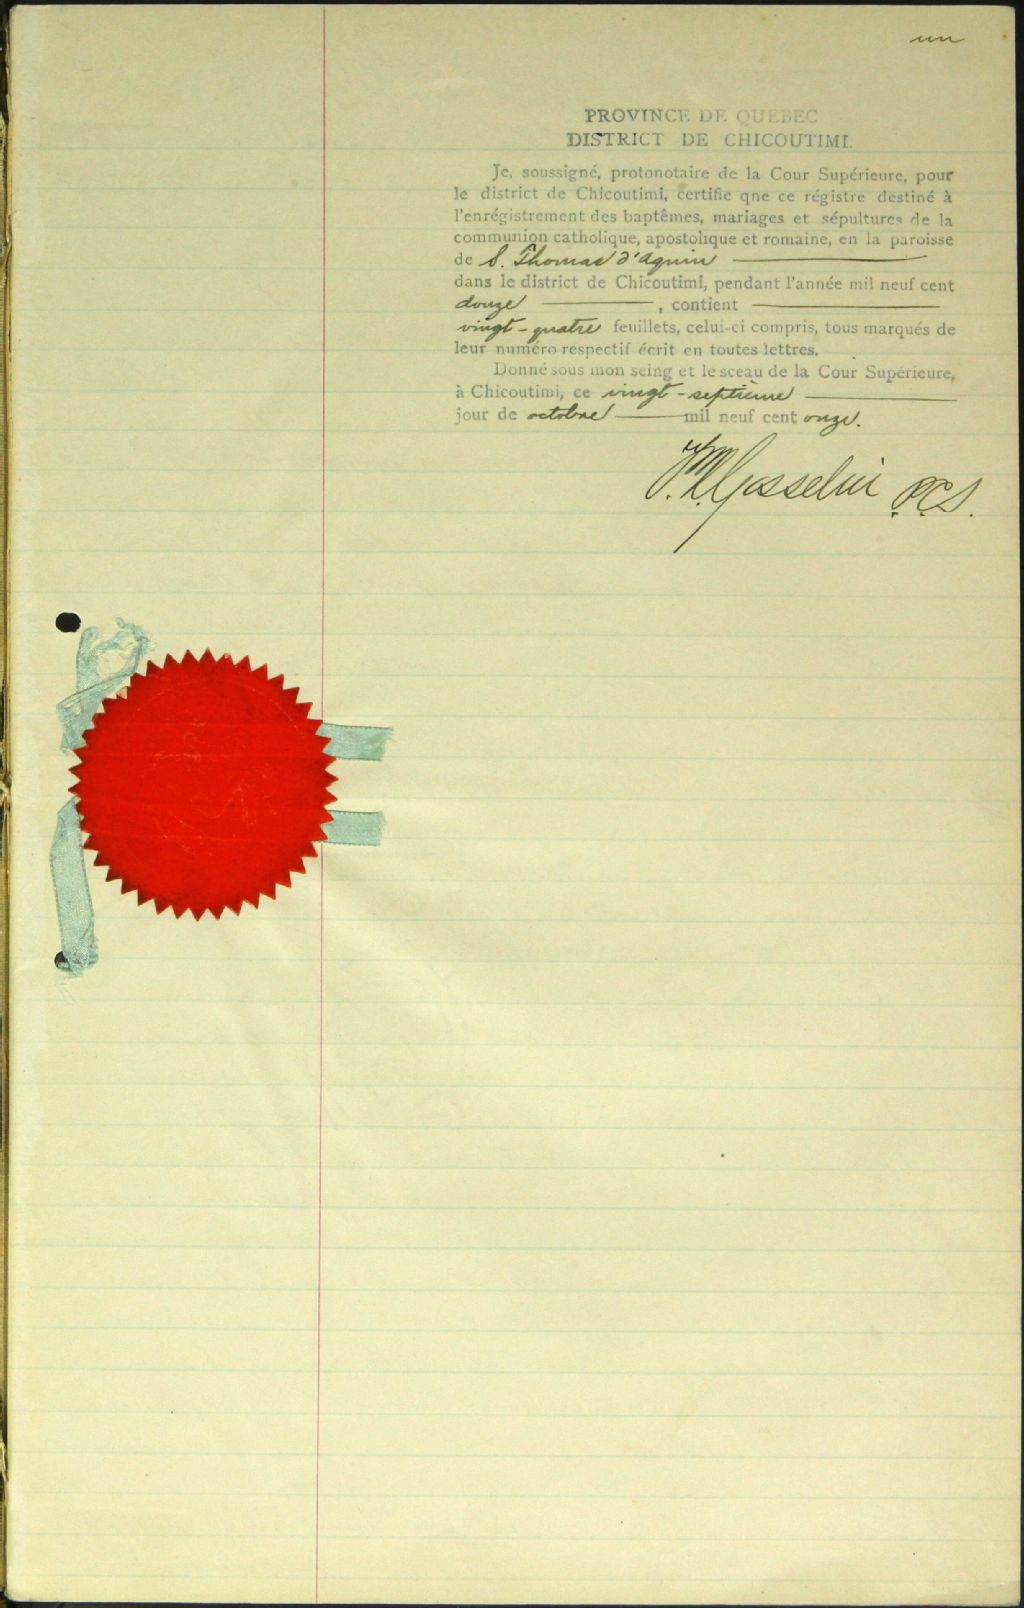 un
PROVINCE DE QUEBEC
DISTRICT DE CHICOUTIMI.
Je, soussigné, protonotaire de la Cour Supérieure, pour
le district de Chicoutimi, certifie qne ce régistre destiné à
l'enrégistrement des baptêmes, mariages et sépultures de la
communion catholique, apostolique et romaine, en la paroisse
de S. Thomas d'Aquin
dans le district de Chicoutimi, pendant l'année mil neuf cent
douze , contient
vingt-quatre feuillets, celui-ci compris, tous marqués de
leur numéro respectif écrit en toutes lettres.
Donné sous mon seing et le sceau de la Cour Supérieure,
à Chicoutimi, ce vingt-septième
jour de octobre mil neuf cent onze.
Gosselin P.C.S.